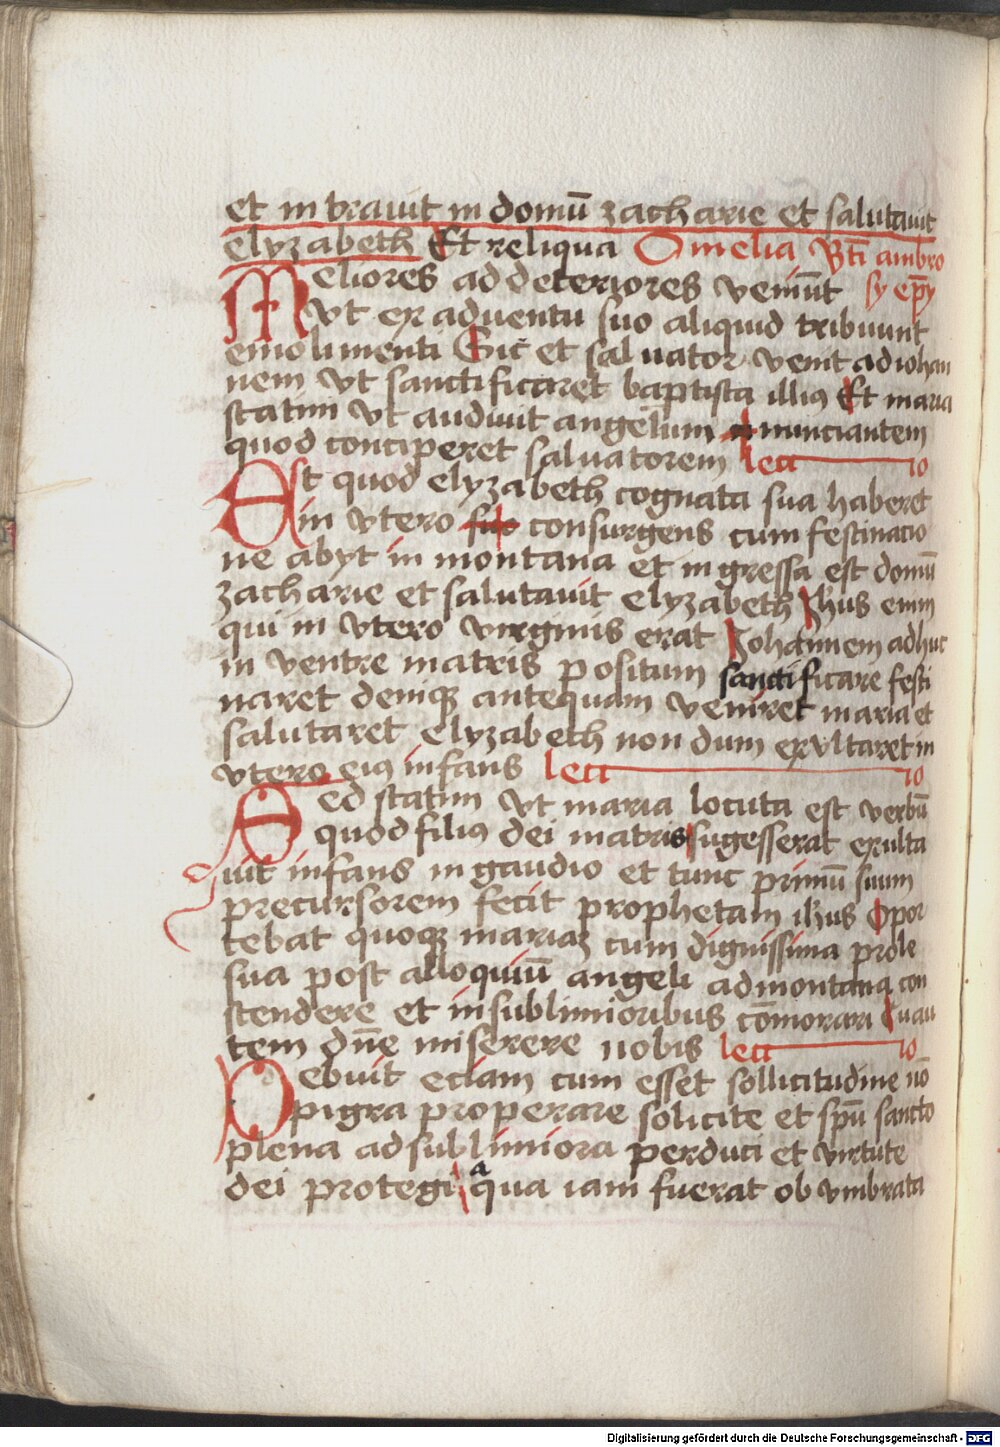 et in travit in domū zacharie et salutauit
elyzabeth Et reliqua Omelia Bti ambro
Meliores ad deteriores veniūt sy epy
vt ex aduentu suo aliquid tribuunt
emolimenti Sic et saluator venit ad iohan
nem vt sanctificaret baptista illius Et maria
statim vt audiuit angelum nunciantem
quod conciperet saluatorem lectio
Et quod elyzabeth cognata sua haberet
in vtero consurgens cum festinacio
ne abyt in montana et in gressa est domū
zacharie et salutauit elyzabeth Jhus enim
qui in vtero virginis erat Johannem adhuc
in ventre matris positum sanctificare festi
naret deniqꝫ antequam veniret maria et
salutaret elyzabeth non dum exultaret in
vtero eius infans lectio
Sed statim vt maria locuta est verbū
quod filius dei matris sugesserat exulta
uit infans in gaudio et tunc primū suum
precursorem fecit prophetam ihus Opor
tebat quoqꝫ mariaꝫ cum dignissima prole
sua post alloquiuū angeli ad montana con
scendere et in sublimioribus cōmorari Tu au
tem dn̄e miserere nobis lectio
Debuit eciam cum esset sollicitudine nō
pigra properare solicite et spū sancto
plena ad sublimiora perduci et virtute
dei protegi a qua iam fuerat ob vmbrata
Digitalisierung gefördert durch die Deutsche Forschungsgemeinschaft - DFG